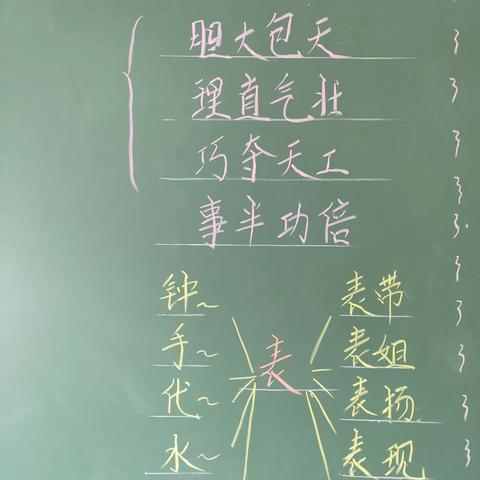 胆大包天
理直气壮
巧夺天工
事半功倍
钟~ 表带
手~ 表姐
表
代~ 表扬
水~ 表现